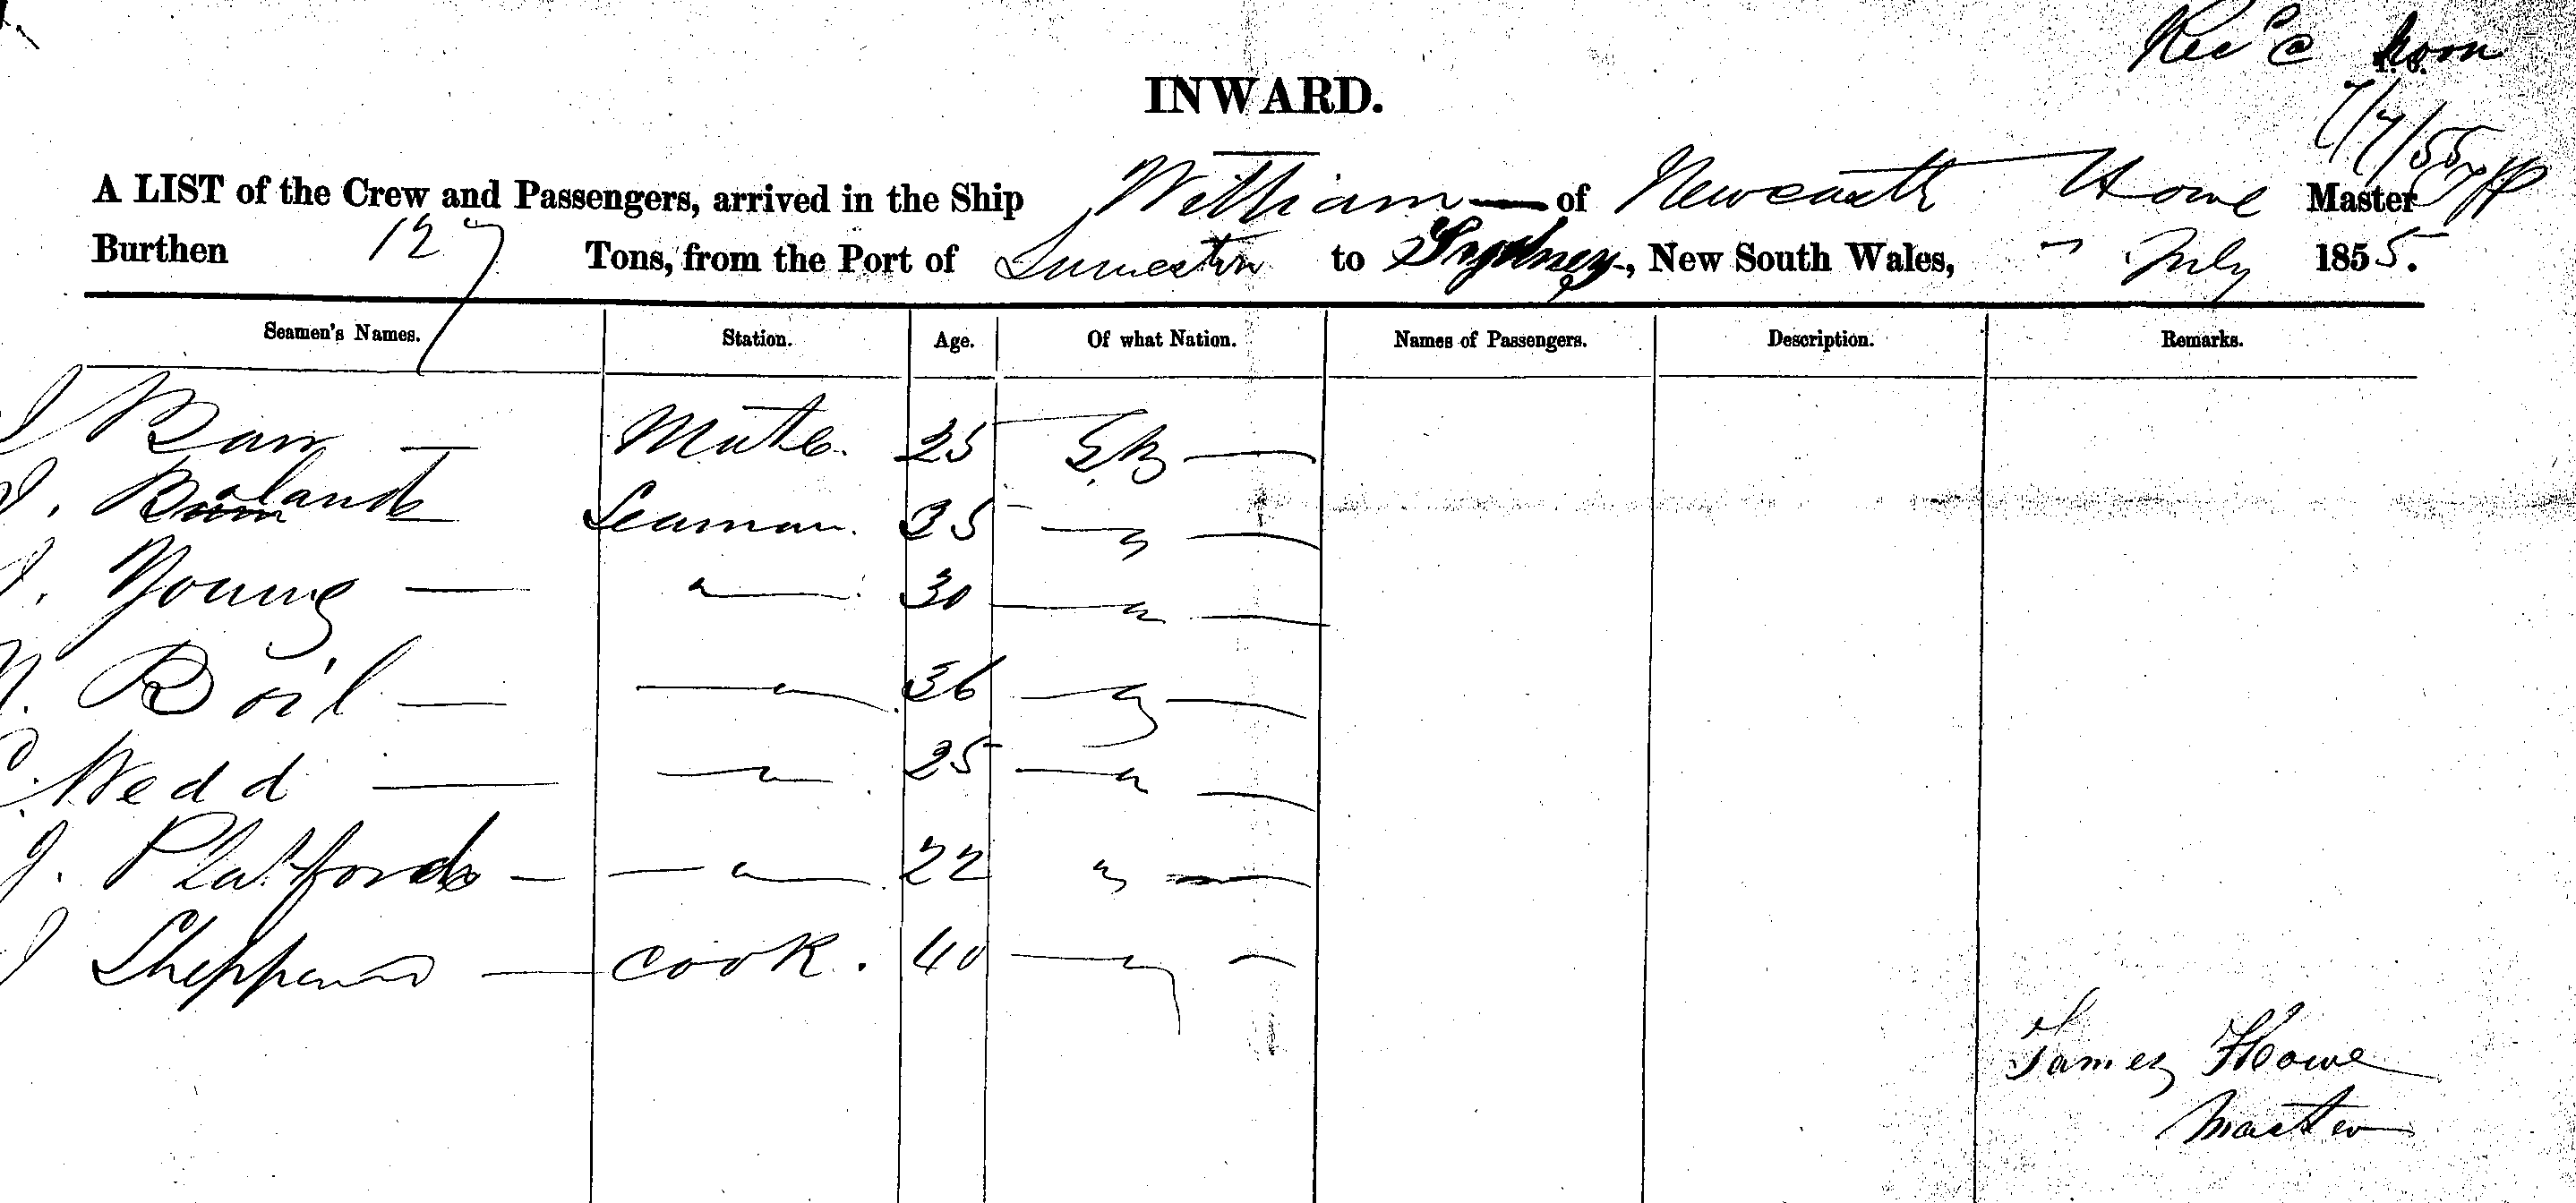 Rec'd noon
7/7/55
INWARD.
A LIST of the Crew and Passengers, arrived in the Ship William — of Newcastle Howe Master
Burthen 127 Tons, from the Port of Launceston to Sydney, New South Wales, 7 July 1855.
Seamen's Names. Station. Age. Of what Nation. Names of Passengers. Description. Remarks.
J Barr — Mate. 25 G.B —
J. Bolands Seaman. 35 — " —
J. Young — " — 30 — " —
N. Boil — — " — 36 — " —
C. Wedd — — " — 25 — " —
J. Platford — — " — 22 " —
J Sheppard — Cook. 40 — " —
James Howe
Master